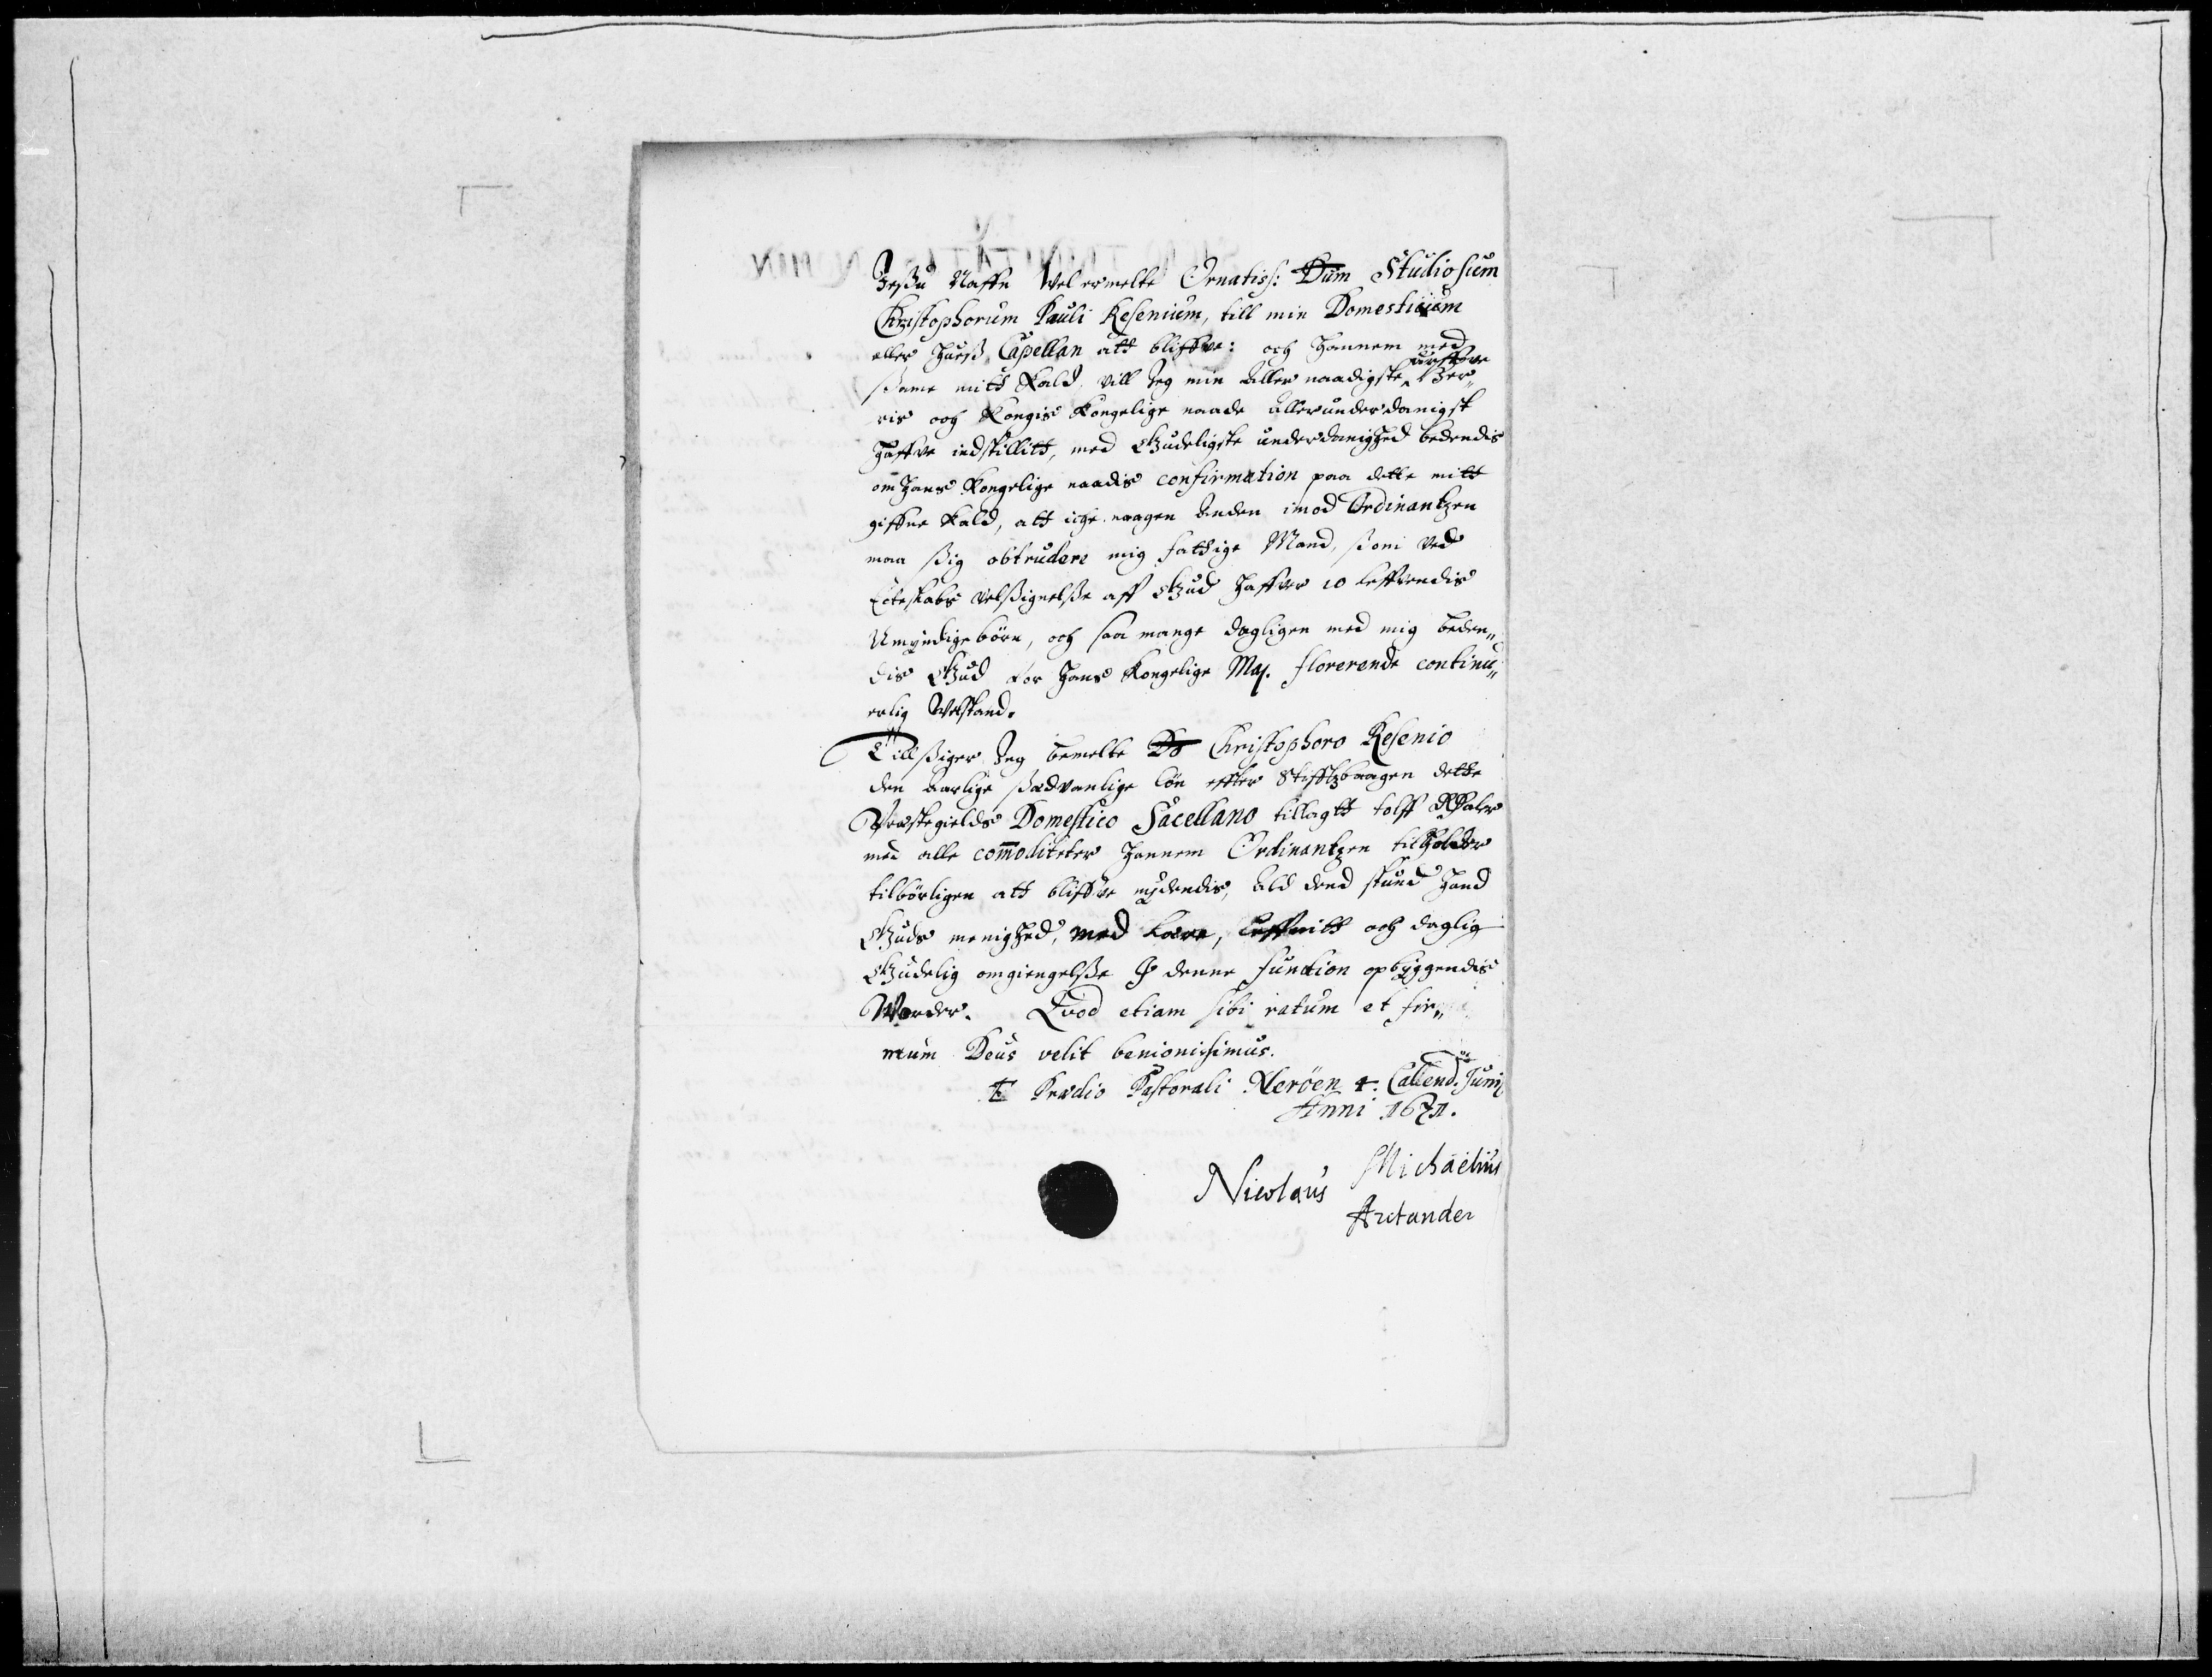 Jeßu Naffn Velermelte Ornatiss: Dum Studiosum
Christophorum Pauli Resenium, till min Domesticum
eller Huuß Capellan att bliffve: och hannem med
ßame mitt Kald vill Jeg min Aller naadigste Arffve Her„
ris och Kongis Kongelige naade allerunderdanigst
haffve indstillitt, med Gudeligste underdanighed bedendis
om Hans Kongelige naadis confirmation paa dette mitt
giffne Kald, att iche nogen Anden imod Ordinantzen
maa ßig obtrudere mig fattige Mand, som ved
Ecteskabs velßignelße aff Gud haffver 10 leffvendis
Umyndige børn, och saa mange dagligen med mig beden„
dis Gud for Hans Kongelige Maj. florerende continu„
erlig Velstand.
Tillßiger Jeg bemelte Do Christophoro Resenio
den aarlige ßædvanlige løn effter Stifftzbaagen dette
Præstegields Domestico Sacellano tillagtt tolff RDaler
med alle com̅oditeter hannem Ordinantzen tilholder
tilbørligen att bliffve nydendis, Ald dend stund hand
Guds menighed, med Lære, Leffnitt och daglig
Gudelig omgiengelße I denne function opbyggendis
Vorder. Qvod etiam sibi ratum et fir„
mum Deus velit benignissimus.
E Prædio Pastorali Nerøen 4. Callend. Junij
Anni 1671.
Nicolaus Michaelius
Arctander